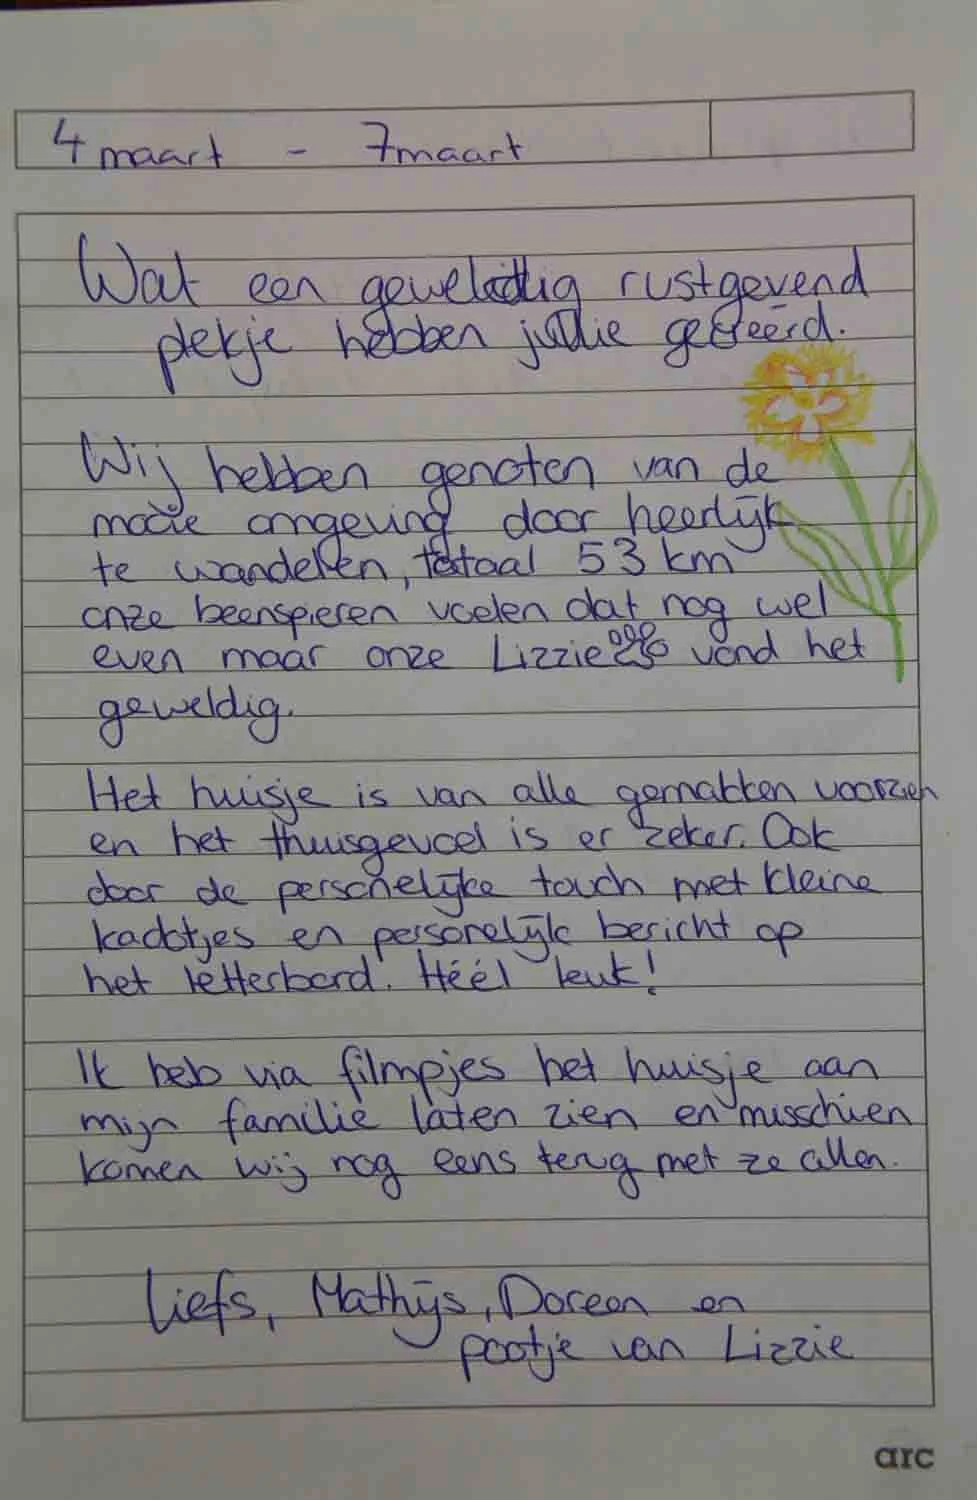 4 maart - 7 maart
Wat een geweldig rustgevend
plekje hebben jullie gecreëerd.
Wij hebben genoten van de
mooie omgeving door heerlijk
te wandelen, totaal 53 km
onze beenspieren voelen dat nog wel
even maar onze Lizzie vond het
geweldig.
Het huisje is van alle gemakken voorzien
en het thuisgevoel is er zeker. Ook
door de personelijke touch met kleine
kadotjes en personelijk bericht op
het letterbord. Héél leuk!
Ik heb via filmpjes het huisje aan
mijn familie laten zien en misschien
komen wij nog eens terug met ze allen.
Liefs, Mathijs, Doreen en
pootje van Lizzie
arc